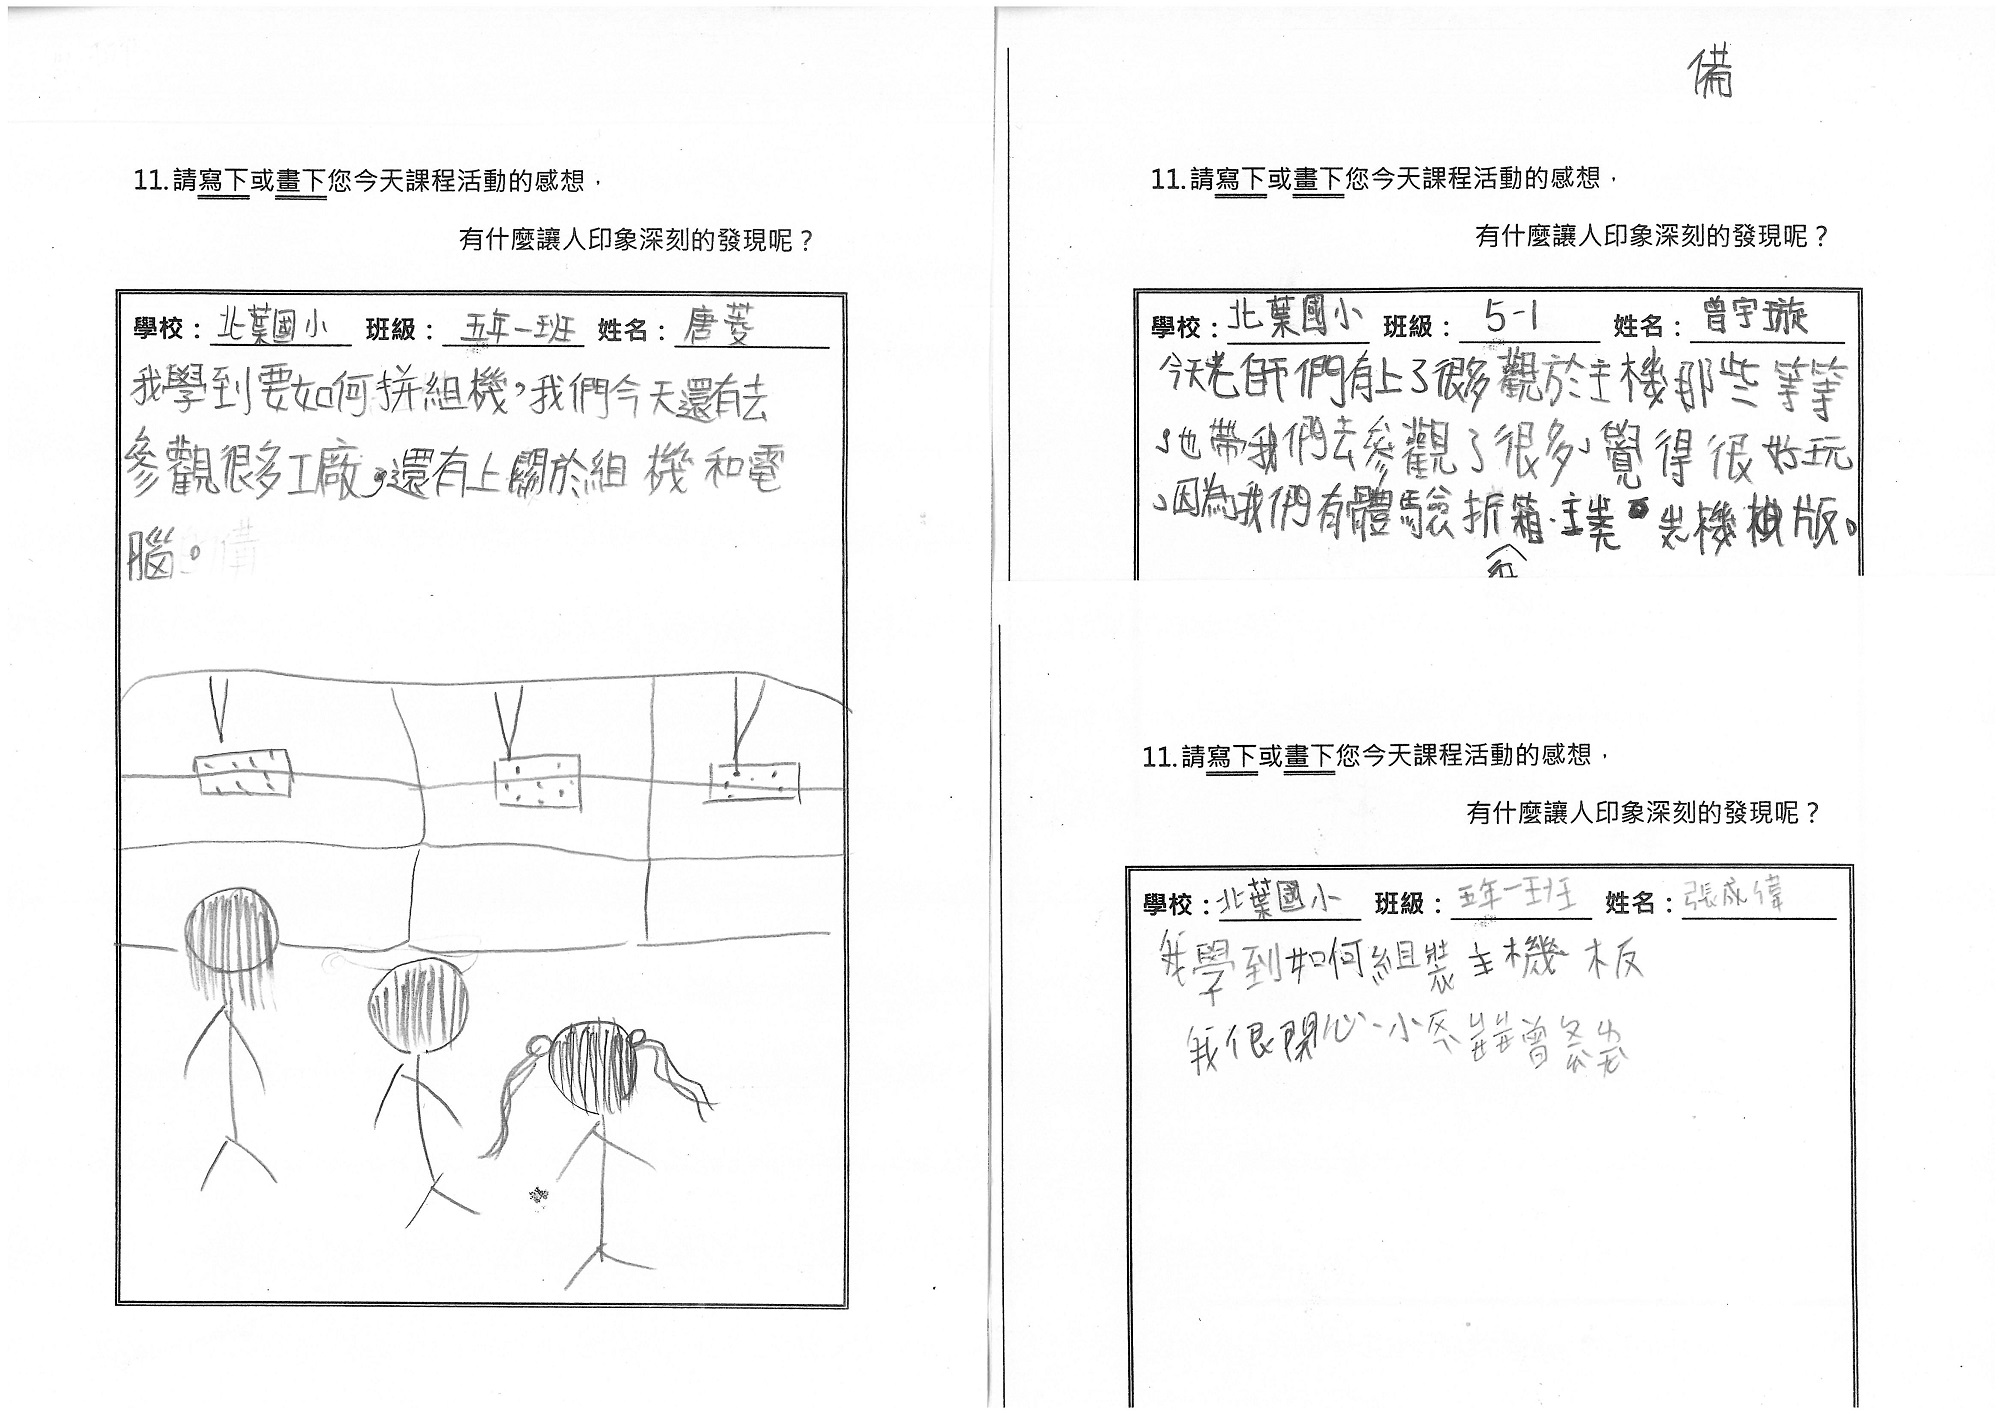 11.請寫下或畫下您今天課程活動的感想，
有什麼讓人印象深刻的發現呢？
學校：北葉國小 班級：五年一班 姓名：唐菱
我學到要如何拼組機，我們今天還有去
參觀很多工廠，還有上關於組機和電
腦。
備
11.請寫下或畫下您今天課程活動的感想，
有什麼讓人印象深刻的發現呢？
學校：北葉國小 班級：5-1 姓名：曾宇璇
今天老師們有上了很多觀於主機那些等等
，也帶我們去參觀了很多，覺得很好玩
，因為我們有體驗拆箱、主機版。
11.請寫下或畫下您今天課程活動的感想，
有什麼讓人印象深刻的發現呢？
學校：北葉國小 班級：五年一班 姓名：張成偉
我學到如何組裝主機板
我很開心